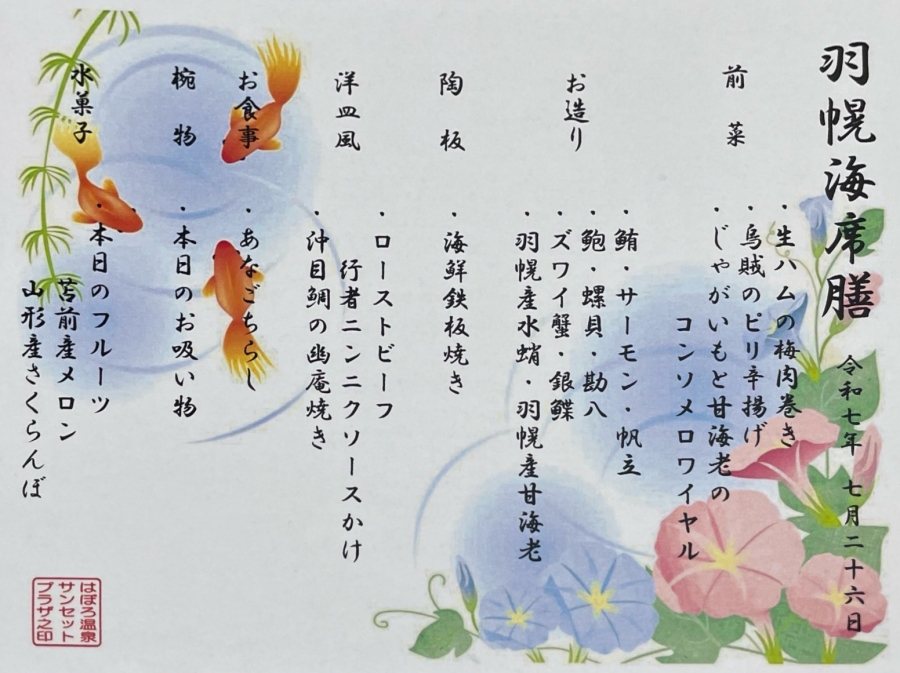 羽幌海席膳　令和七年　七月二十六日
前菜
・生ハムの梅肉巻き
・烏賊のピリ辛揚げ
・じゃがいもと甘海老の
コンソメロワイヤル
お造り
・鮪・サーモン・帆立
・鮑・螺貝・勘八
・ズワイ蟹・銀鰈
・羽幌産水蛸・羽幌産甘海老
陶板
・海鮮鉄板焼き
洋皿風
・ローストビーフ
行者ニンニクソースかけ
・沖目鯛の幽庵焼き
お食事
・あなごちらし
椀物
・本日のお吸い物
水菓子
・本日のフルーツ
苫前産メロン
山形産さくらんぼ
はぼろ温泉
サンセット
プラザ之印